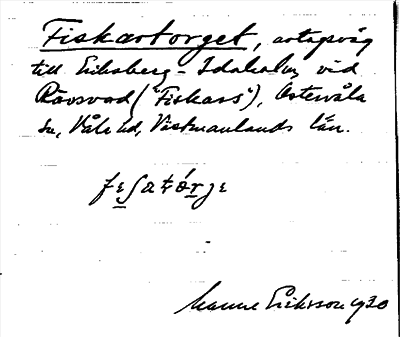 Fiskartorget, avtagsväg
till Eriksberg - Idaholm, vid
Rävsvad ("Fiskars"), Östervåla
sn, Våla hd, Västmanlands län.
Manne Eriksson 1930